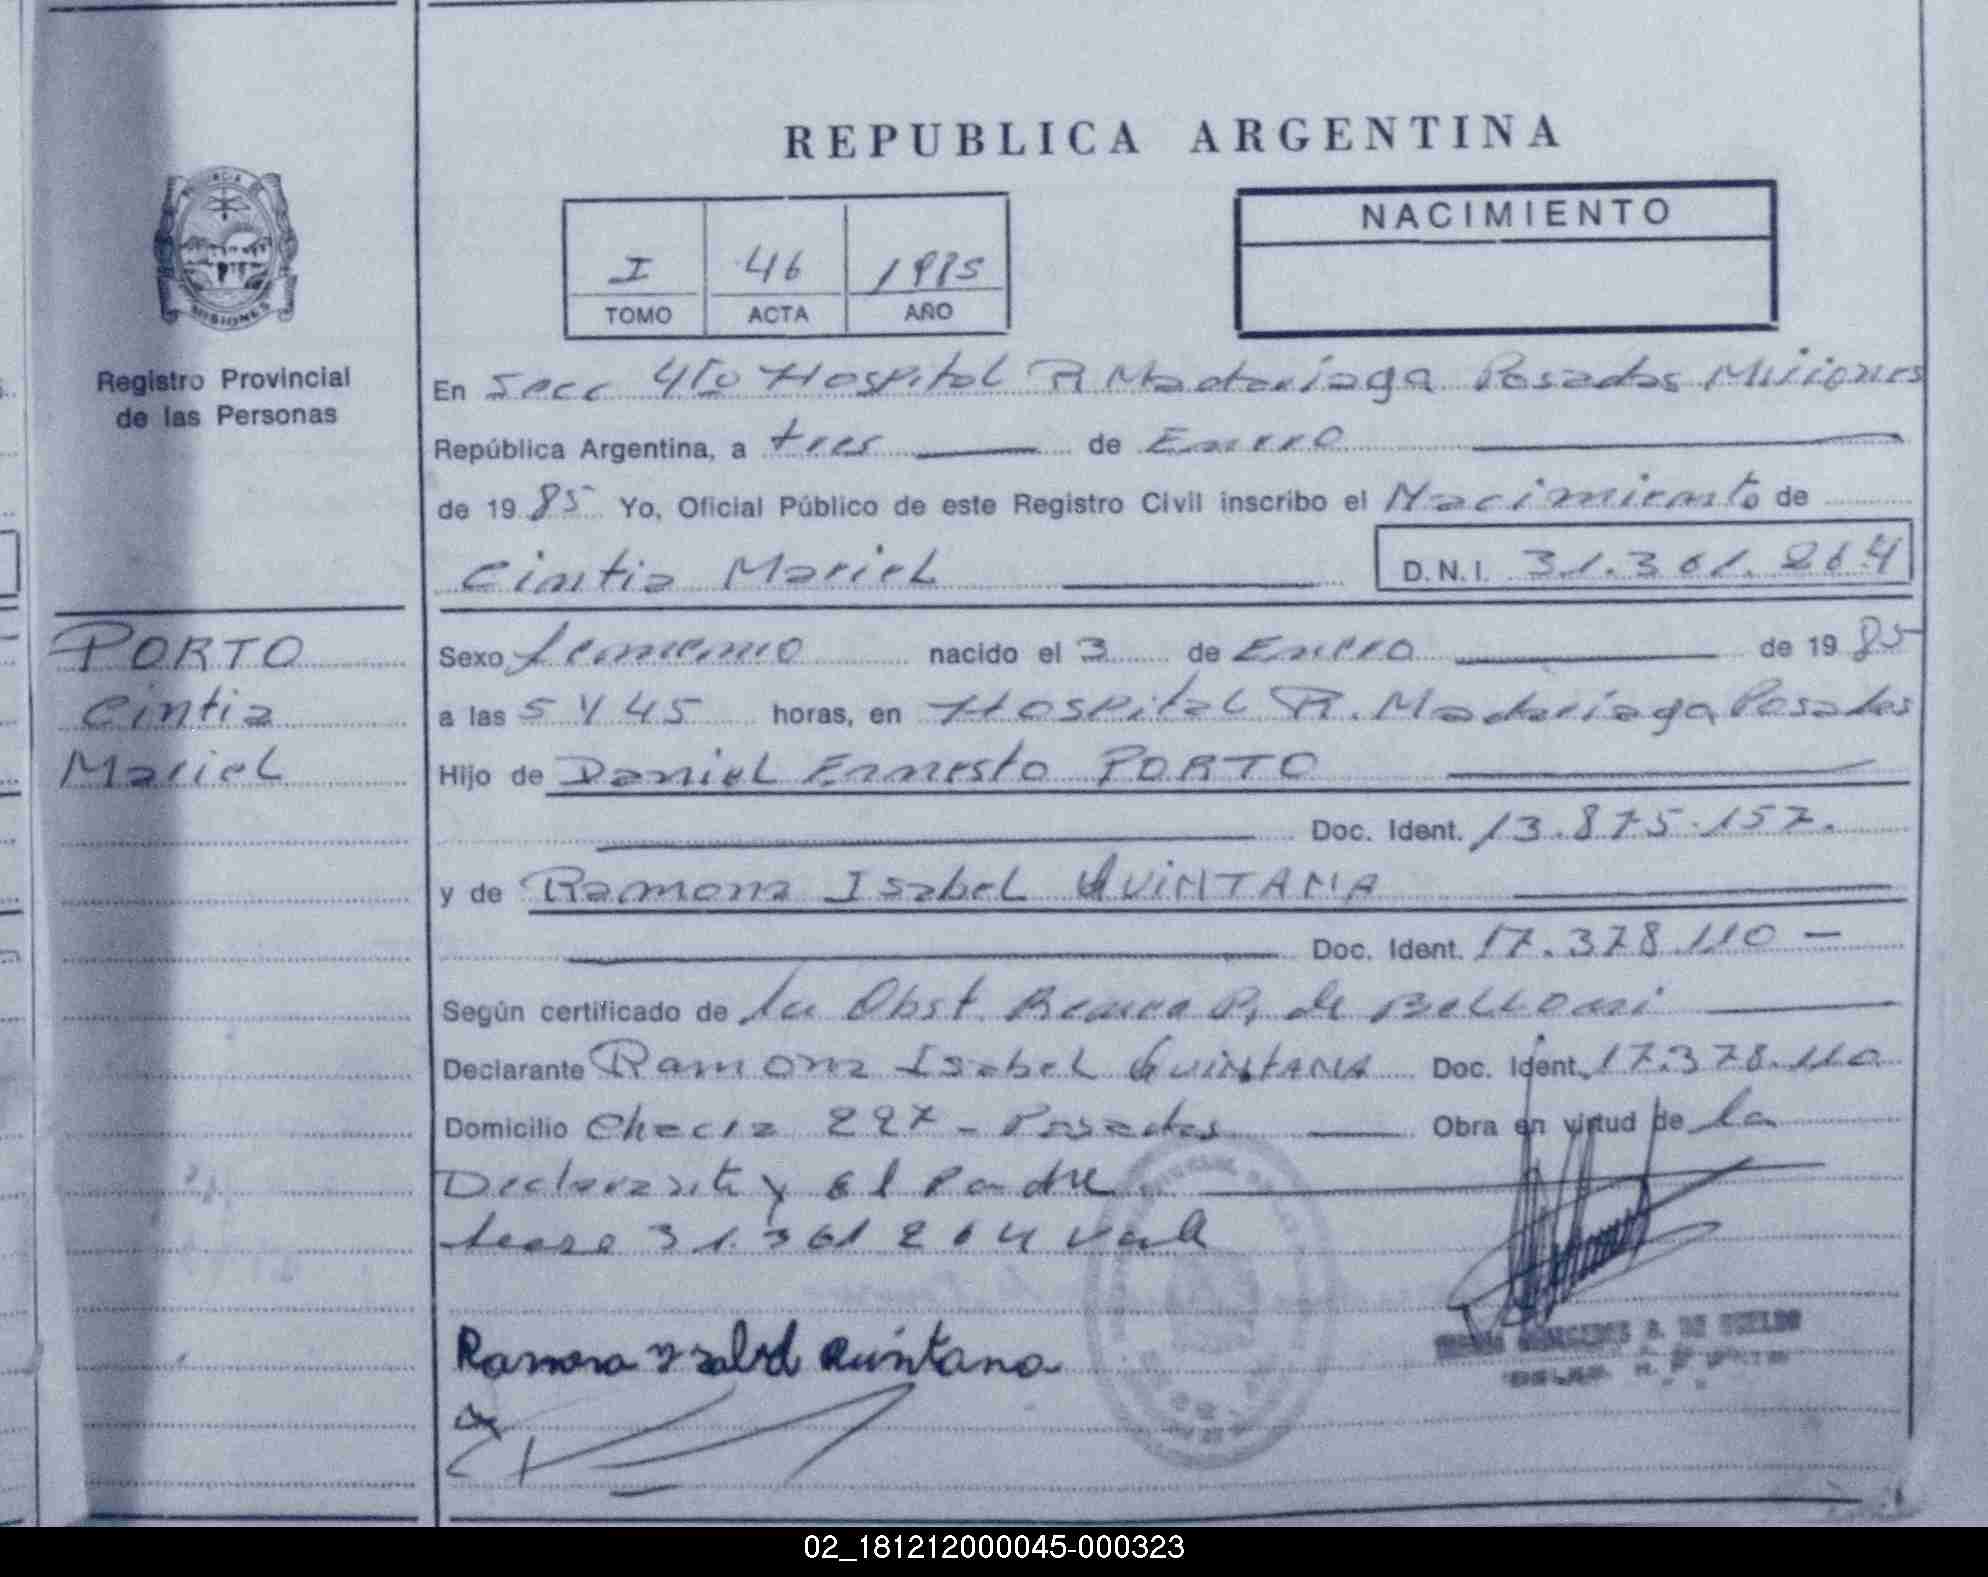 REPUBLICA ARGENTINA
PROVINCIA DE
MISIONES
Registro Provincial
de las Personas
I 46 1985
TOMO ACTA AÑO
NACIMIENTO
En Secc 4to Hospital R Madariaga Posadas Misiones
República Argentina, a tres de Enero
de 1985 Yo, Oficial Público de este Registro Civil inscribo el Nacimiento de
Cintia Mariel D.N.I. 31.361.264
PORTO
Cintia
Mariel
Sexo femenino nacido el 3 de Enero de 1985
a las 5 y 45 horas, en Hospital R. Madariaga Posadas
Hijo de Daniel Ernesto PORTO
Doc. Ident. 13.875.157.
y de Ramona Isabel QUINTANA
Doc. Ident. 17.378.110 —
Según certificado de la Obst. de
Declarante Ramona Isabel QUINTANA Doc. Ident. 17.378.110
Domicilio 227 - Posadas Obra en virtud de la
Declarante y el Padre
31.361264 Vale
Ramona Ysabel Quintana
02_181212000045-000323